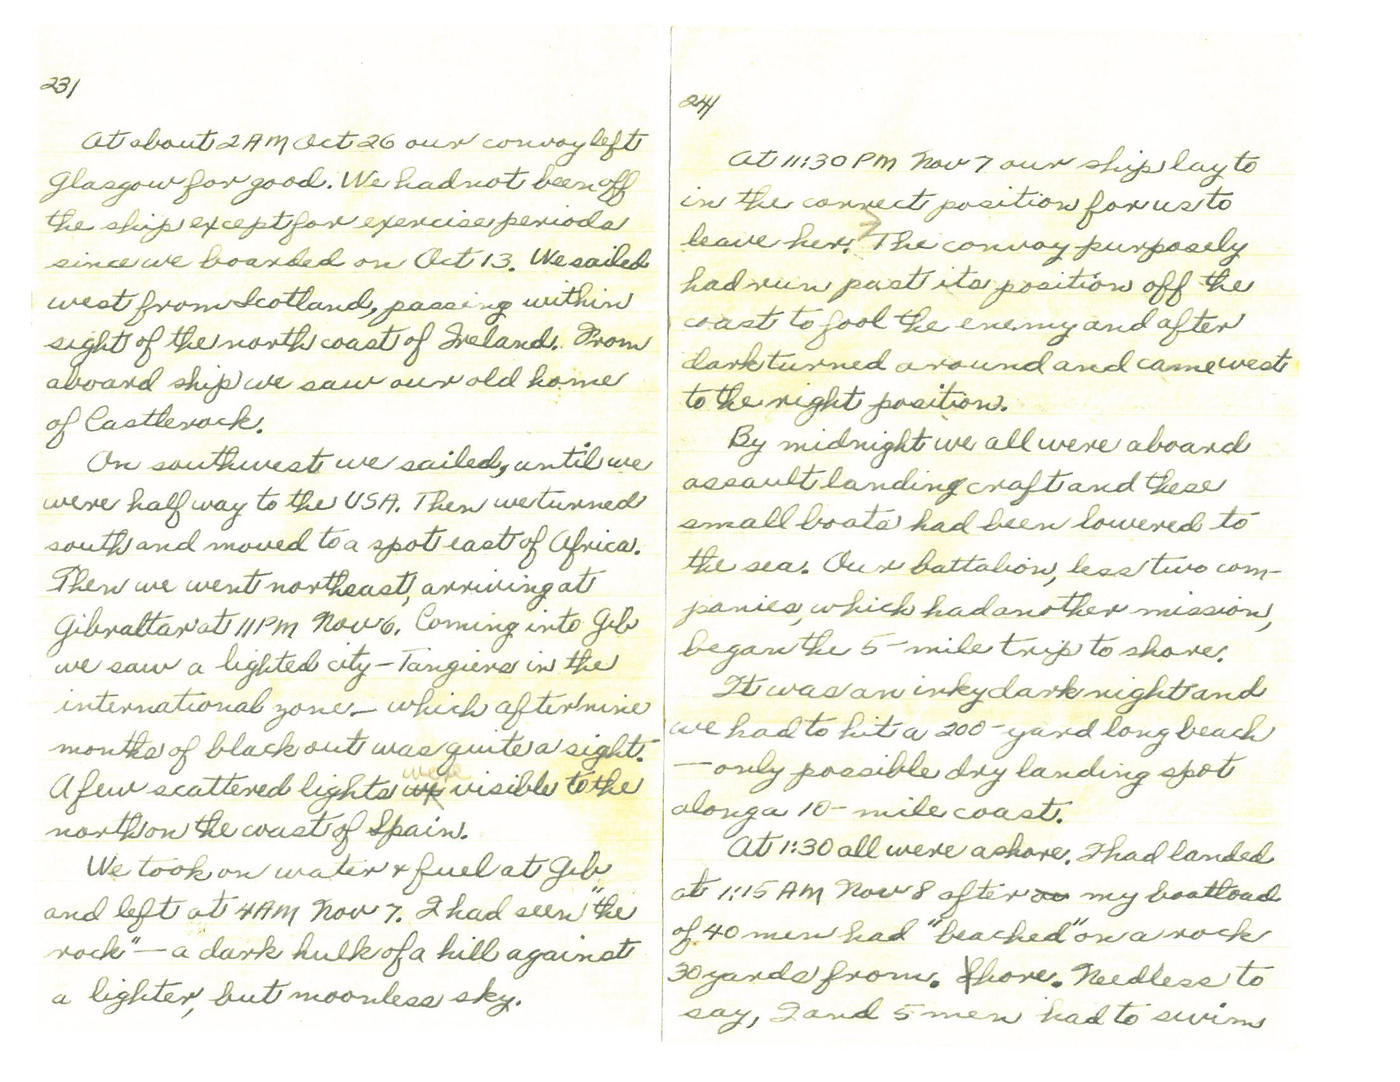 23/
At about 2 AM Oct 26 our convoy left
Glasgow for good. We had not been off
the ship except for exercise periods
since we boarded on Oct 13. We sailed
west from Scotland, passing within
sight of the north coast of Ireland. From
aboard ship we saw our old home
of Castlerock.
On southwest we sailed, until we
were half way to the USA. Then we turned
south and moved to a spot east of Africa.
Then we went northeast, arriving at
Gibraltar at 11 PM Nov 6. Coming into Gib
we saw a lighted city – Tangiers in the
international zone – which after nine
months of black out was quite a sight.
A few scattered lights were visible to the
north on the coast of Spain.
We took on water & fuel at Gib
and left at 4 AM Nov 7. I had seen "the
rock" – a dark hulk of a hill against
a lighter, but moonless sky.
24/
At 11:30 PM Nov 7 our ship lay to
in the correct position for us to
leave her. The convoy purposely
had run past its position off the
coast to fool the enemy and after
dark turned around and came west
to the right position.
By midnight we all were aboard
assault landing craft and these
small boats had been lowered to
the sea. Our battalion, less two com-
panies, which had another mission,
began the 5-mile trip to shore.
It was an inky dark night and
we had to hit a 200-yard long beach
– only possible dry landing spot
along a 10-mile coast.
At 1:30 all were ashore. I had landed
at 1:15 AM Nov 8 after my boatload
of 40 men had "beached" on a rock
30 yards from. Shore. Needless to
say, I and 5 men had to swim